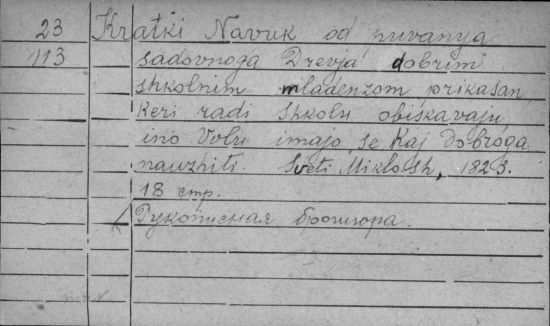 23 Kratki Navuk od puvanya
113 sadovnoga Drevja dobrim
shkolnim mladenzom prikasan,
keri radi Shkolu obiskavaju,
ino Volu imajo, se kaj dobroga
nauzhiti. Sveti Miklosh, 1823.
18 стр.
Рукописная брошюра.